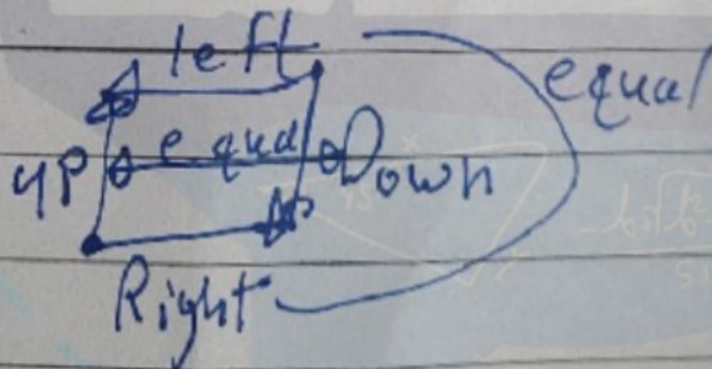 left
equal
up equal Down
Right